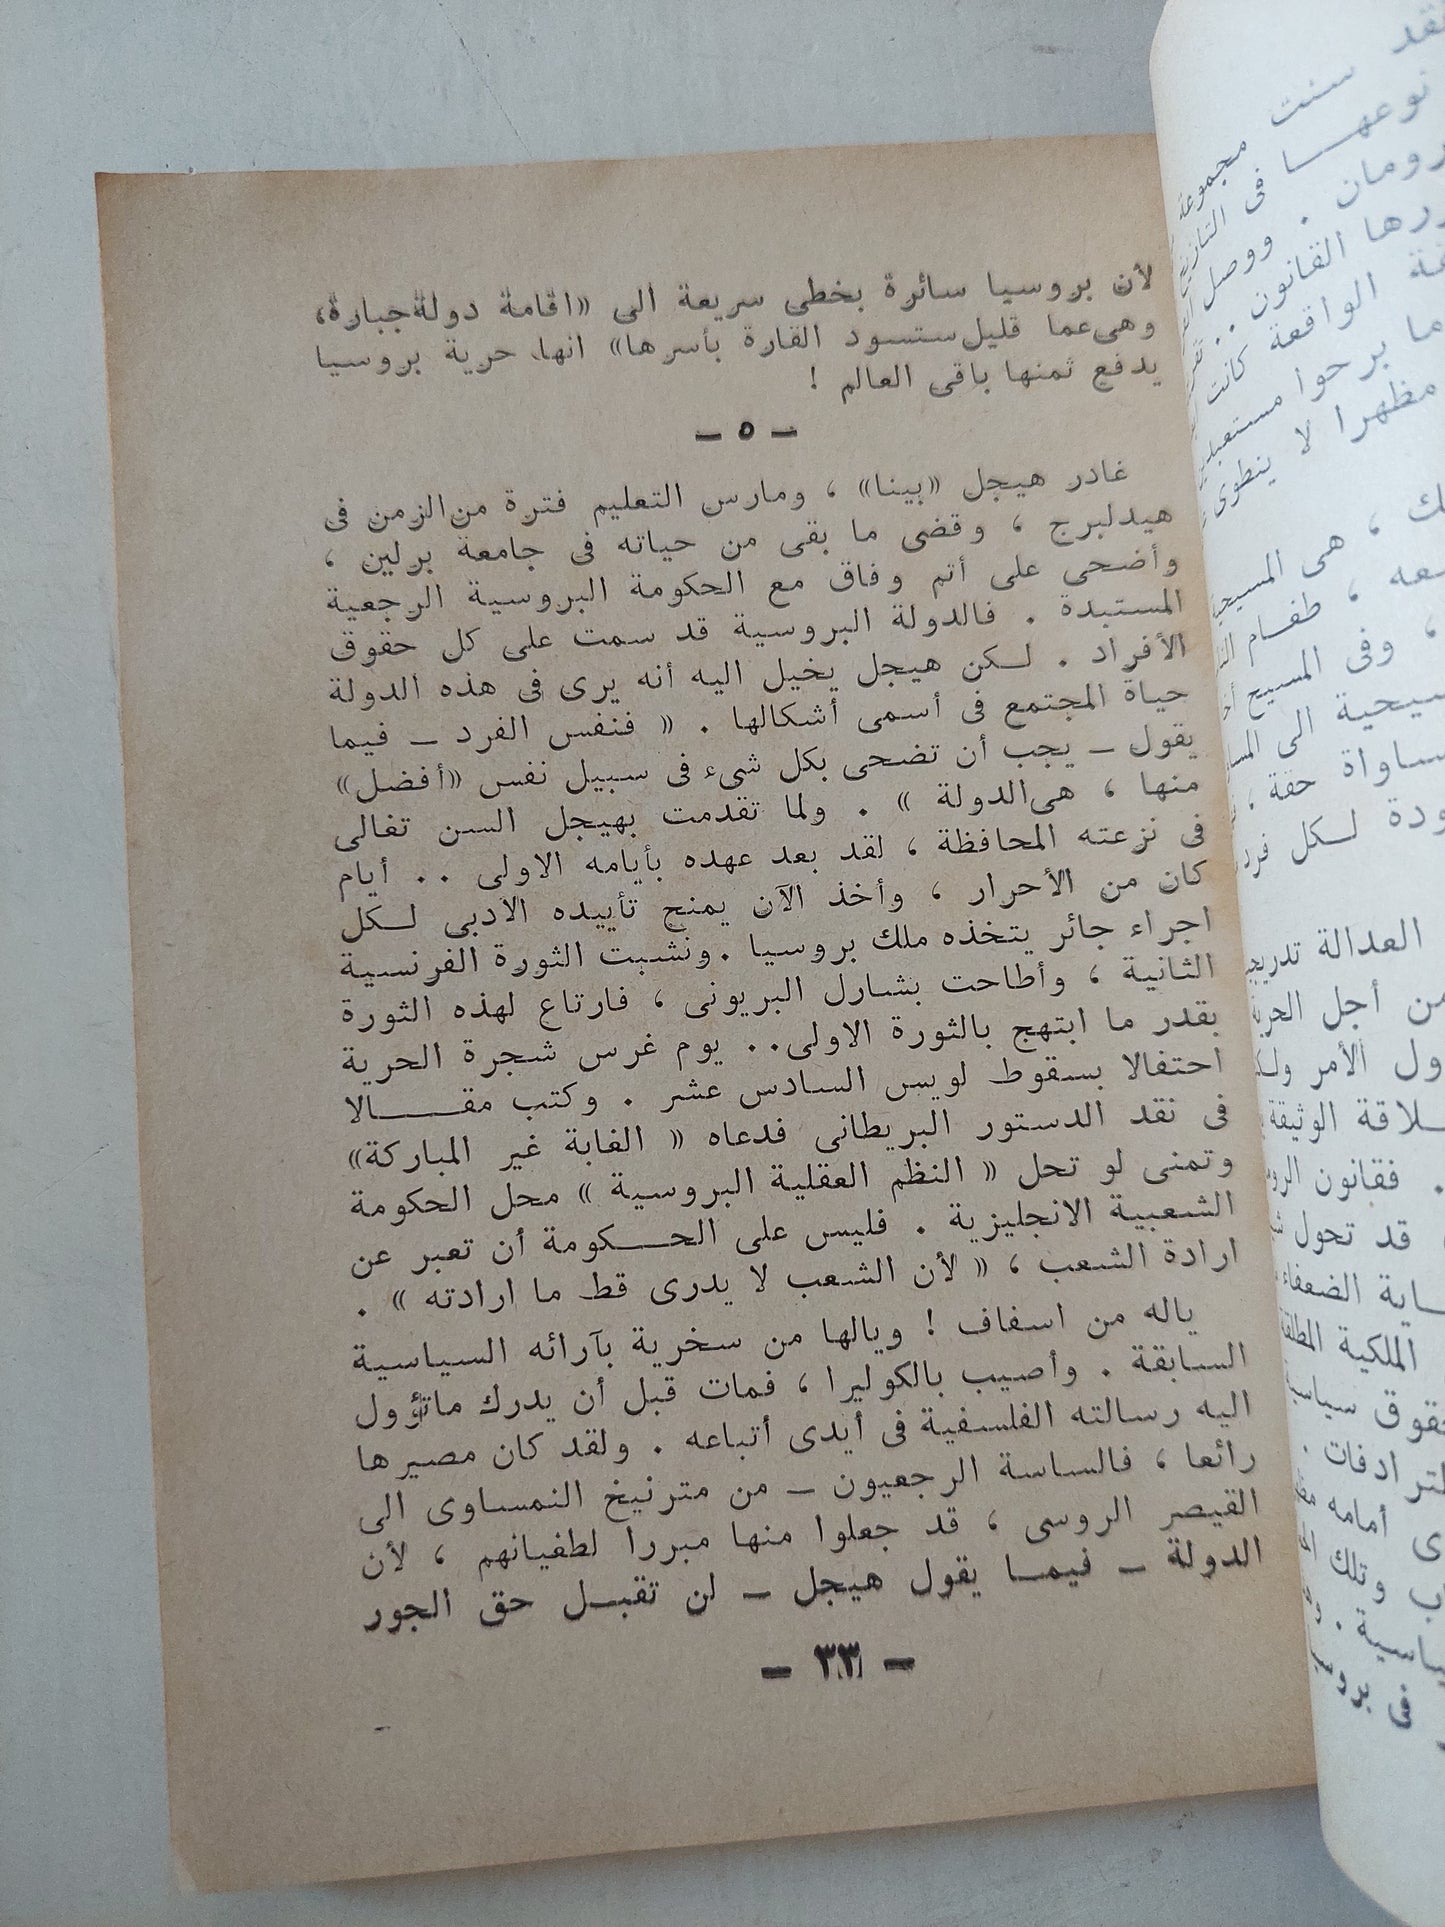 لأن بروسيا سائرة بخطى سريعة الى «اقامة دولة جبارة،
وهى عما قليل ستسود القارة بأسرها» انها حرية بروسيا
يدفع ثمنها باقى العالم !
— ٥ —
غادر هيجل «بينا» ، ومارس التعليم فترة من الزمن فى
هيدلبرج ، وقضى ما بقى من حياته فى جامعة برلين ،
وأضحى على أتم وفاق مع الحكومة البروسية الرجعية
المستبدة . فالدولة البروسية قد سمت على كل حقوق
الأفراد . لكن هيجل يخيل اليه أنه يرى فى هذه الدولة
حياة المجتمع فى أسمى أشكالها . « فنفس الفرد — فيما
يقول — يجب أن تضحى بكل شىء فى سبيل نفس «أفضل»
منها ، هى الدولة » . ولما تقدمت بهيجل السن تغالى
فى نزعته المحافظة ، لقد بعد عهده بأيامه الاولى .. أيام
كان من الأحرار ، وأخذ الآن يمنح تأييده الادبى لكل
اجراء جائر يتخذه ملك بروسيا . ونشبت الثورة الفرنسية
الثانية ، وأطاحت بشارل البريونى ، فارتاع لهذه الثورة
بقدر ما ابتهج بالثورة الاولى .. يوم غرس شجرة الحرية
احتفالا بسقوط لويس السادس عشر . وكتب مقالا
فى نقد الدستور البريطانى فدعاه « الغابة غير المباركة»
وتمنى لو تحل « النظم العقلية البروسية » محل الحكومة
الشعبية الانجليزية . فليس على الحكومة أن تعبر عن
ارادة الشعب ، « لأن الشعب لا يدرى قط ما ارادته » .
ياله من اسفاف ! ويالها من سخرية بآرائه السياسية
السابقة . وأصيب بالكوليرا ، فمات قبل أن يدرك ماتؤول
اليه رسالته الفلسفية فى أيدى أتباعه . ولقد كان مصيرها
رائعا ، فالساسة الرجعيون — من مترنيخ النمساوى الى
القيصر الروسى ، قد جعلوا منها مبررا لطغيانهم ، لأن
الدولة — فيما يقول هيجل — لن تقبل حق الجور
— ٣٣ —
سنت مجموعة
نوعها فى التاريخ
رومان . ووصل
القانون .
الواقعة كانت
ما برحوا
مظهرا لا ينطوى
، هى
، طغام
، وفى المسيح
الى
حقة ،
لكل فرد
العدالة
من أجل
الأمر
الوثيقة
. فقانون
قد تحول
الضعفاء
الملكية المطلقة
سياسية
.
أمامه
وتلك
.
فى